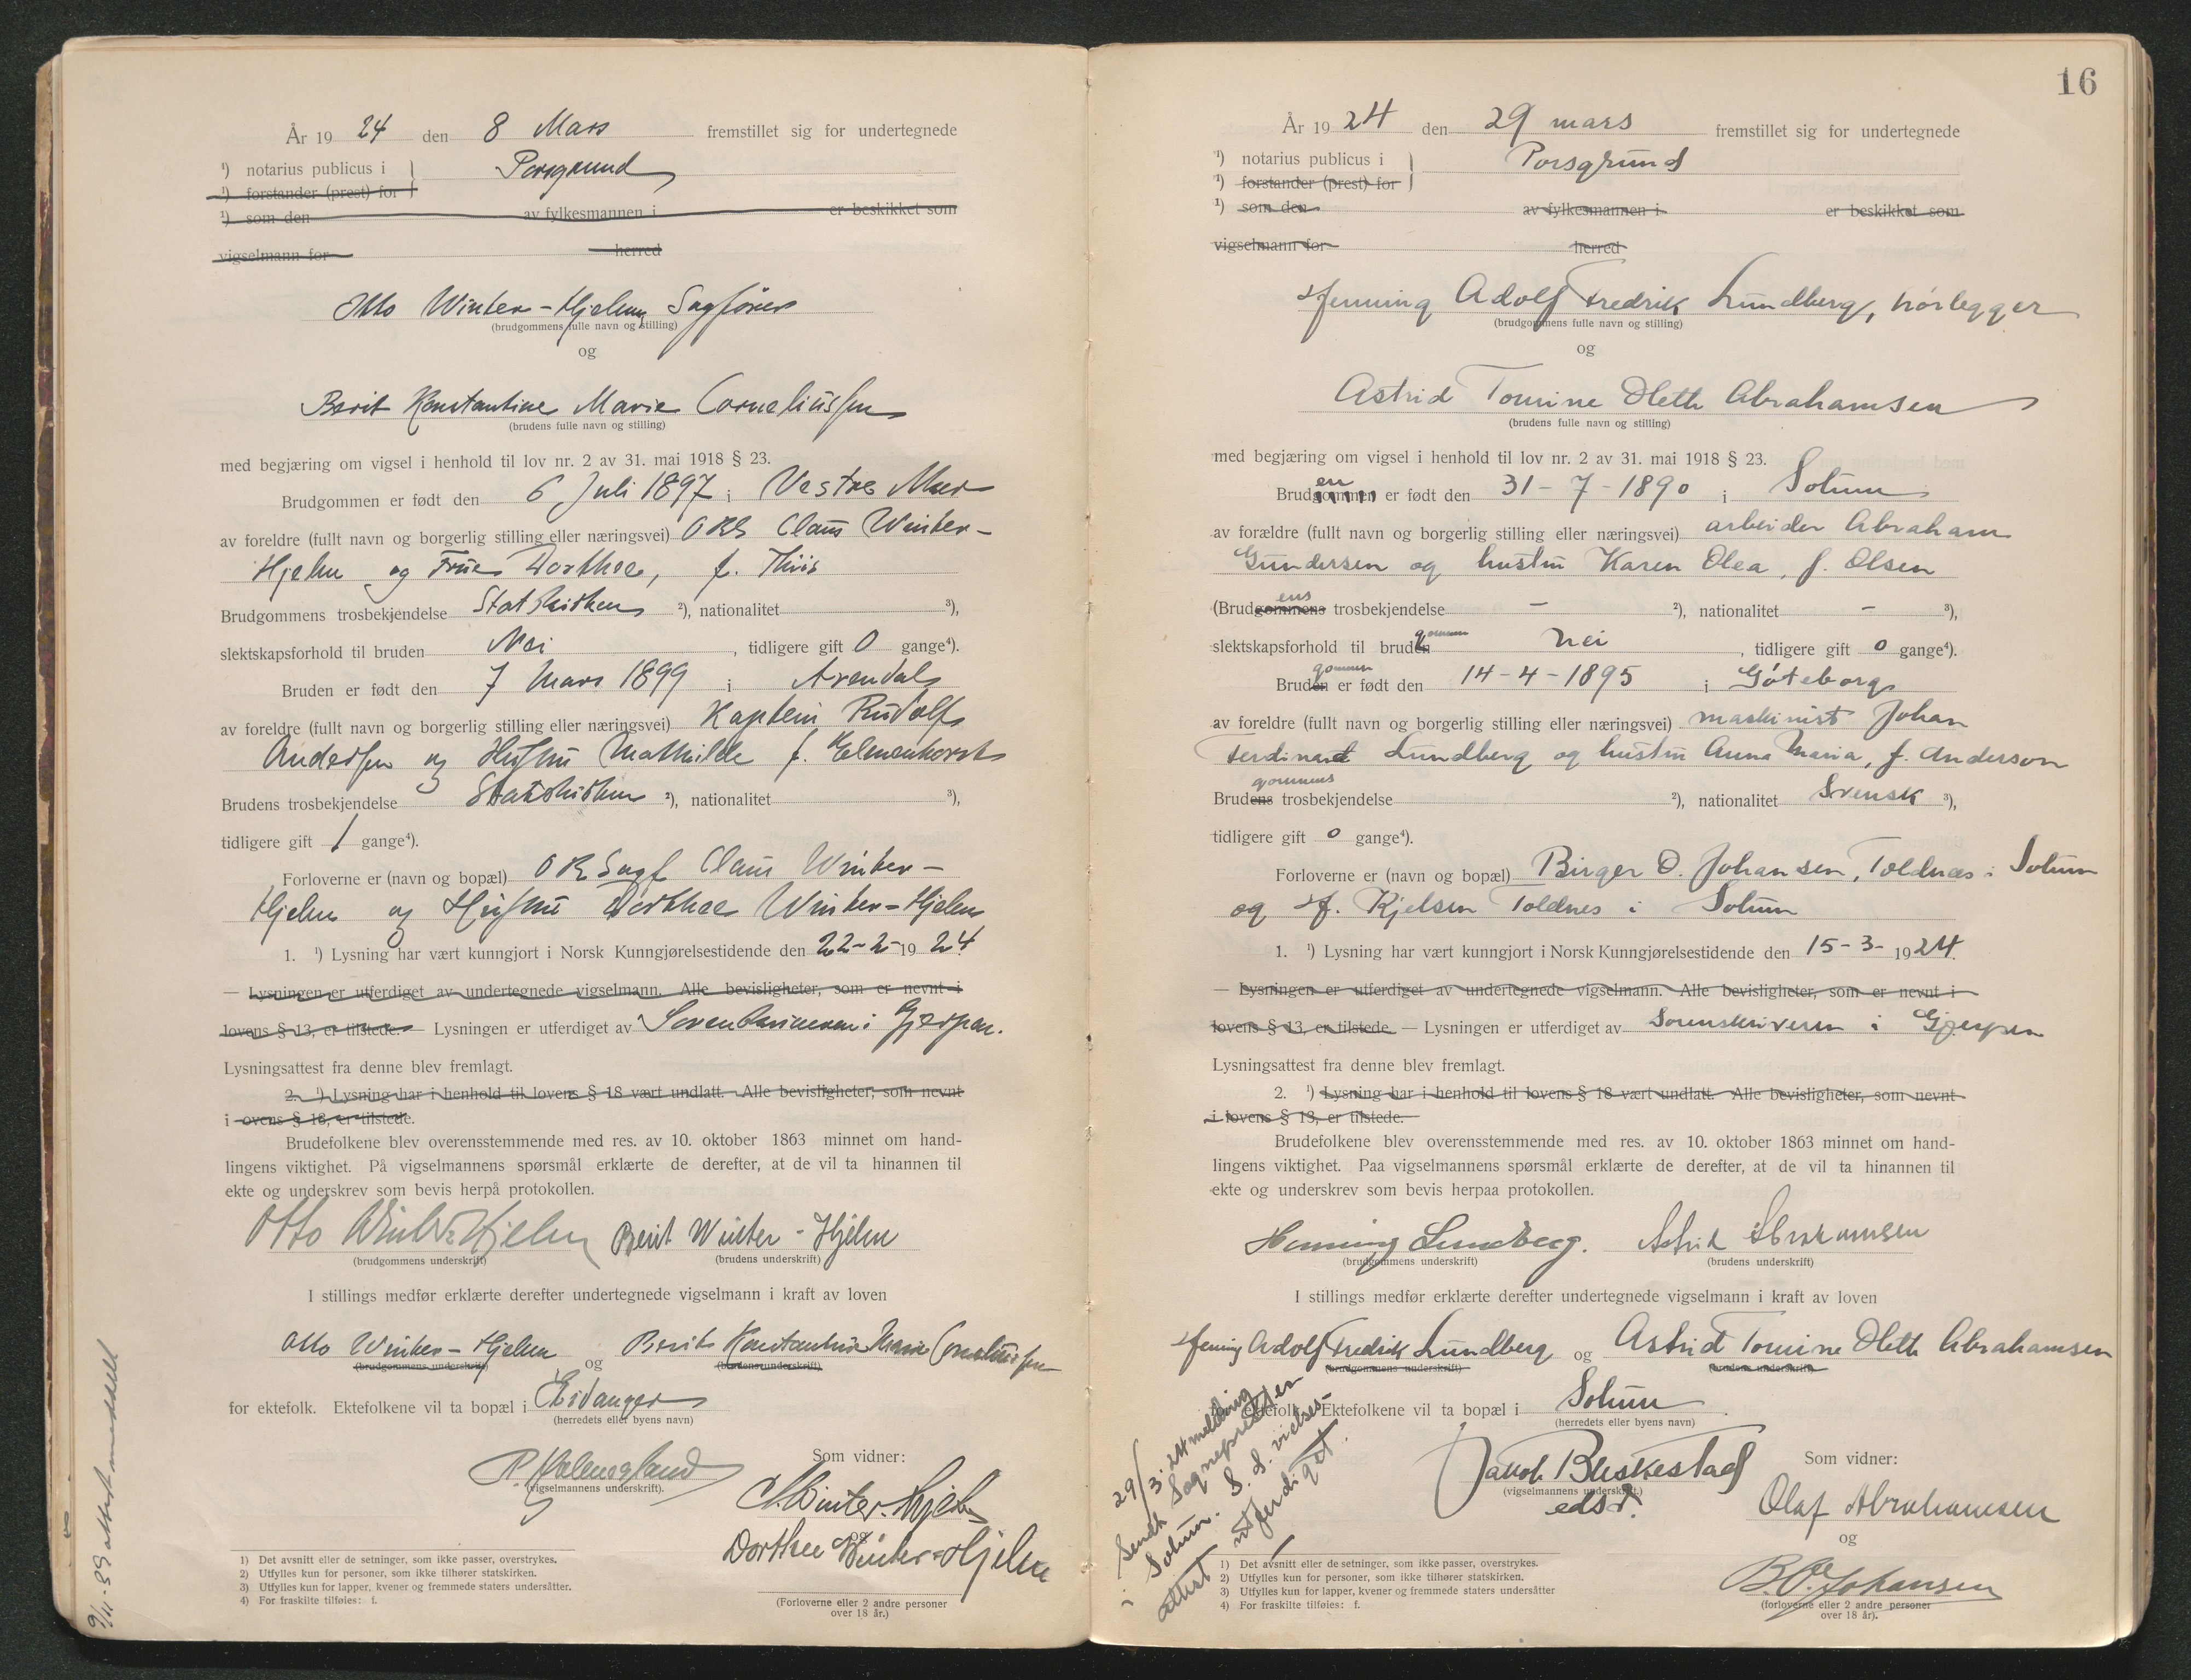 År 19 24 den 8 Mars fremstillet sig for undertegnede
¹) notarius publicus i } Porsgrund
¹) forstander (prest) for
¹) som den av fylkesmannen i er beskikket som
vigselmann for herred
Otto Winter-Hjelm, Sagfører
(brudgommens fulle navn og stilling)
og
Berit Konstantine Marie Corneliussen
(brudens fulle navn og stilling)
med begjæring om vigsel i henhold til lov nr. 2 av 31. mai 1918 § 23.
Brudgommen er født den 6 Juli 1897 i Vestre Aker
av foreldre (fullt navn og borgerlig stilling eller næringsvei) ORS Claus Winter-
Hjelm og Frue Dorthee, f. Thiis
Brudgommens trosbekjendelse Statskirken ²), nationalitet ³),
slektskapsforhold til bruden Nei, tidligere gift 0 gange⁴).
Bruden er født den 7 Mars 1899 i Arendal
av foreldre (fullt navn og borgerlig stilling eller næringsvei) Kaptein Rudolf
Anderssen og Hustru Mathilde f. Elmenhorst
Brudens trosbekjendelse Statskirken ²), nationalitet ³),
tidligere gift 1 gange⁴).
Forloverne er (navn og bopæl) ORSagf Claus Winter-
Hjelm og Hustru Dorthee Winter-Hjelm
1. ¹) Lysning har vært kunngjort i Norsk Kunngjørelsestidende den 22-2-19 24
— Lysningen er utferdiget av undertegnede vigselmann. Alle bevisligheter, som er nevnt i
lovens § 13, er tilstede. — Lysningen er utferdiget av Sorenskriveren i Gjerpen.
Lysningsattest fra denne blev fremlagt.
2. ¹) Lysning har i henhold til lovens § 18 vært undlatt. Alle bevisligheter, som nevnt
i ovens § 13, er tilstede.
Brudefolkene blev overensstemmende med res. av 10. oktober 1863 minnet om hand-
lingens viktighet. På vigselmannens spørsmål erklærte de derefter, at de vil ta hinannen til
ekte og underskrev som bevis herpå protokollen.
Otto Winter Hjelm Berit Winter-Hjelm
(brudgommens underskrift) (brudens underskrift)
I stillings medfør erklærte derefter undertegnede vigselmann i kraft av loven
Otto Winter-Hjelm og Berit Konstantine Marie Corneliussen
(brudgommens underskrift) (brudens underskrift)
for ektefolk. Ektefolkene vil ta bopæl i Eidanger
(herredets eller byens navn)
Som vidner:
(vigselmannens underskrift).
C. Winter-Hjelm
og
Dorthee Winter-Hjelm
(Forloverne eller 2 andre personer
over 18 år.)
1) Det avsnitt eller de setninger, som ikke passer, overstrykes.
2) Utfylles kun for personer, som ikke tilhører statskirken.
3) Utfylles kun for lapper, kvener og fremmede staters undersåtter.
4) For fraskilte tilføies: f.
9/11-39 attest meddelt
16
År 19 24 den 29 mars fremstillet sig for undertegnede
¹) notarius publicus i } Porsgrund
¹) forstander (prest) for
¹) som den av fylkesmannen i er beskikket som
vigselmann for herred
Henning Adolf Fredrik Lundberg, rørlegger
(brudgommens fulle navn og stilling)
og
Astrid Tomine Oleth Abrahamsen
(brudens fulle navn og stilling)
med begjæring om vigsel i henhold til lov nr. 2 av 31. mai 1918 § 23.
Brudgommen en er født den 31-7-1890 i Solum
av forældre (fullt navn og borgerlig stilling eller næringsvei) arbeider Abraham
Gundersen og hustru Karen Olea, f. Olsen
(Brudgommens ens trosbekjendelse - ²), nationalitet - ³),
slektskapsforhold til bruden gommen nei, tidligere gift 0 gange⁴).
Bruden gommen er født den 14-4-1895 i Göteborg
av foreldre (fullt navn og borgerlig stilling eller næringsvei) maskinist Johan
Ferdinand Lundberg og hustru Anna Maria, f. Anderson
Brudens gommens trosbekjendelse ²), nationalitet Svensk ³),
tidligere gift 0 gange⁴).
Forloverne er (navn og bopæl) Birger O. Johansen, Toldnæs i Solum
og H. Kjelsen Toldnes i Solum
1. ¹) Lysning har vært kunngjort i Norsk Kunngjørelsestidende den 15-3-1924.
— Lysningen er utferdiget av undertegnede vigselmann. Alle bevisligheter, som er nevnt i
lovens § 13, er tilstede. — Lysningen er utferdiget av Sorenskriveren i Gjerpen
Lysningsattest fra denne blev fremlagt.
2. ¹) Lysning har i henhold til lovens § 18 vært undlatt. Alle bevisligheter, som nevnt
i lovens § 13, er tilstede.
Brudefolkene blev overensstemmende med res. av 10. oktober 1863 minnet om hand-
lingens viktighet. Paa vigselmannens spørsmål erklærte de derefter, at de vil ta hinannen til
ekte og underskrev som bevis herpaa protokollen.
Henning Lundberg. Astrid Abrahamsen
(brudgommens underskrift) (brudens underskrift)
I stillings medfør erklærte derefter undertegnede vigselmann i kraft av loven
Henning Adolf Fredrik Lundberg og Astrid Tomine Oleth Abrahamsen
(brudgommens underskrift) (brudens underskrift)
for ektefolk. Ektefolkene vil ta bopæl i Solum.
(herredets eller byens navn)
29/3.24 melding
sendt Sognepresten
i Solum. S. d. vielses-
attest utferdiget.
Jakob
(vigselmannens underskrift.)
edsv.
Som vidner:
Olaf Abrahamsen
og
B. O. Johansen
(forloverne eller 2 andre personer
over 18 år).
1) Det avsnitt eller de setninger, som ikke passer, overstrykes.
2) Utfylles kun for personer, som ikke tilhører statskirken.
3) Utfylles kun for lapper, kvener og fremmede staters undersåtter
4) For fraskilte tilføies: f.